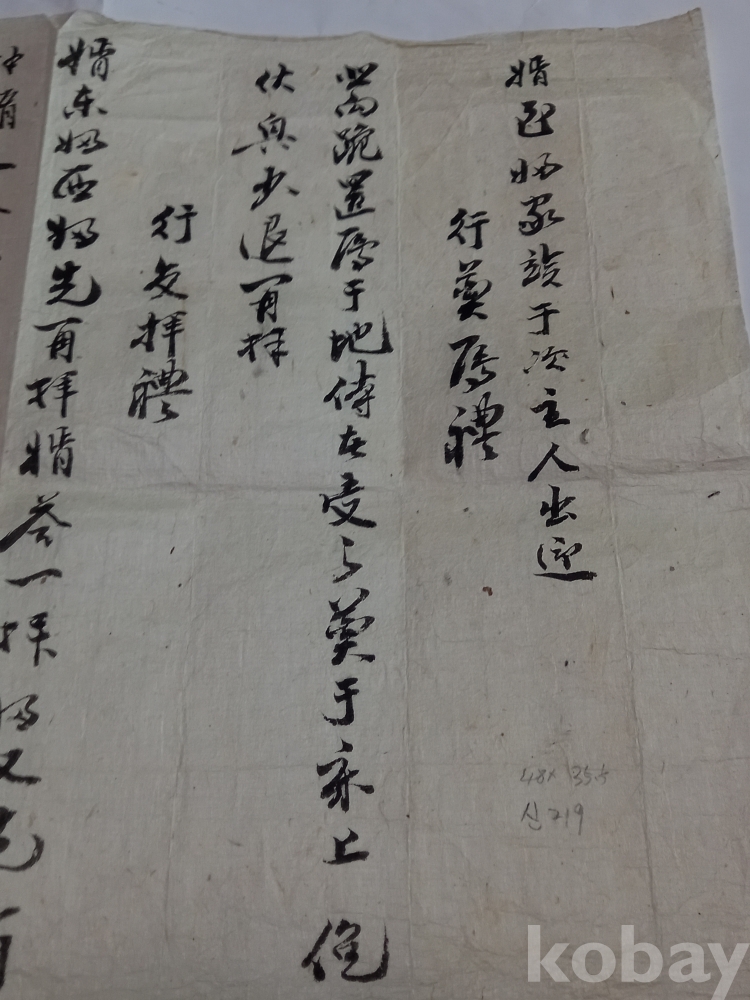 婿至婦家竢于次主人出迎
行奠鴈禮
北向跪置鴈于地侍者受之奠于上 俛
伏興少退再拜
行交拜禮
婿東婦西婦先再拜婿答一拜婦又先再
婿一
48×35.5
신219
kobay